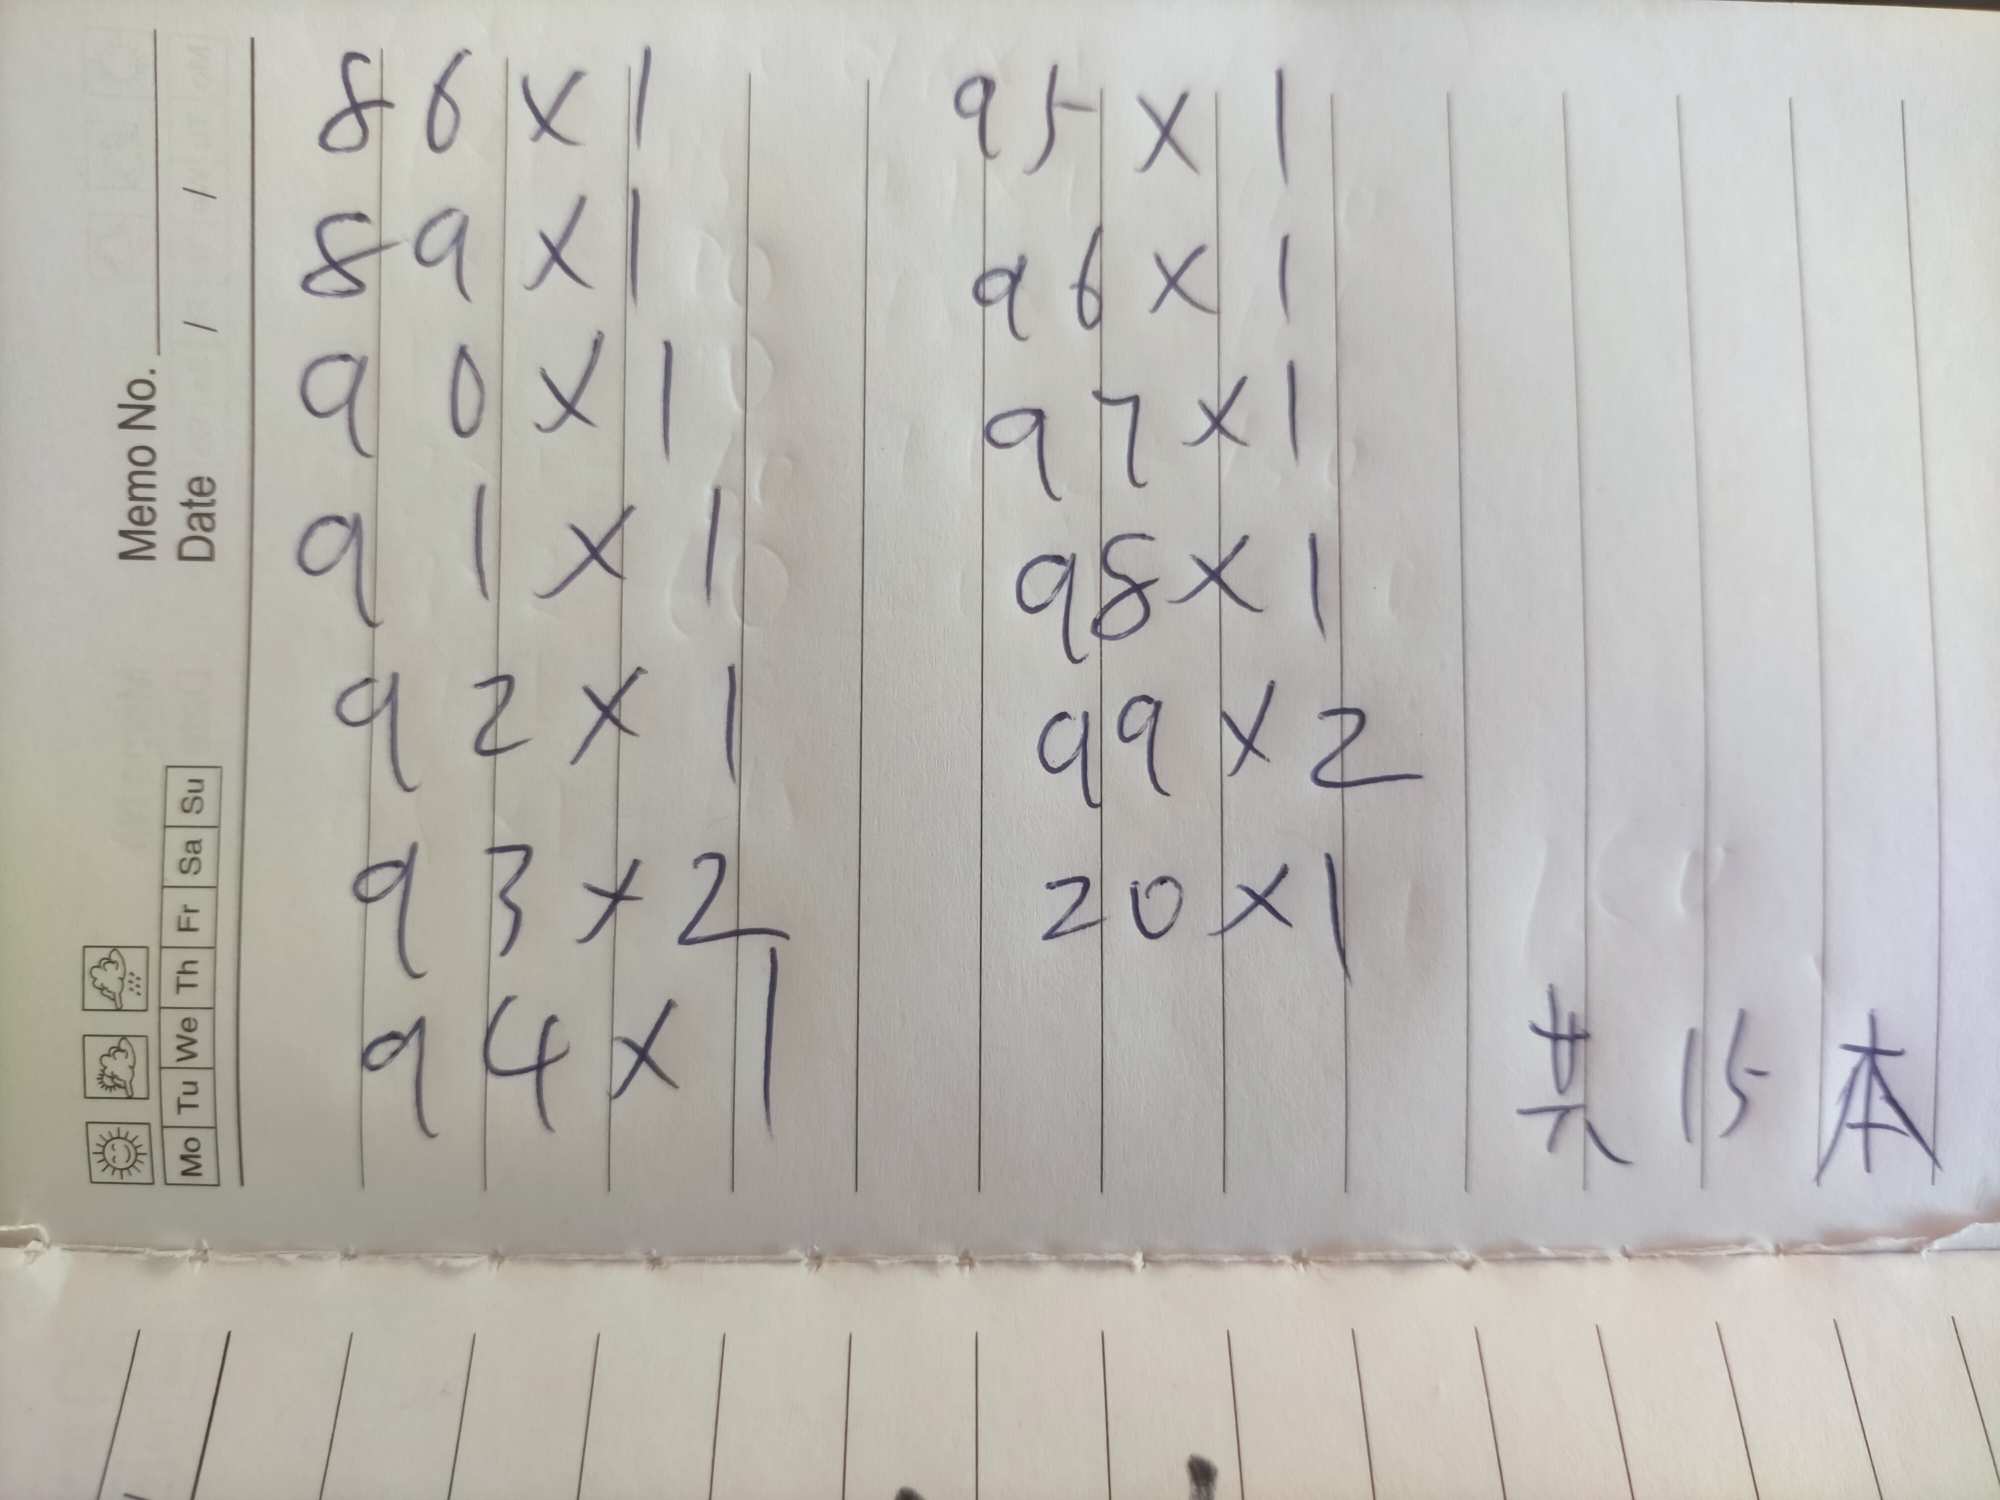 Memo No.
Date / /
Mo Tu We Th Fr Sa Su
86×1
89×1
90×1
91×1
92×1
93×2
94×1
95×1
96×1
97×1
98×1
99×2
20×1
共15本